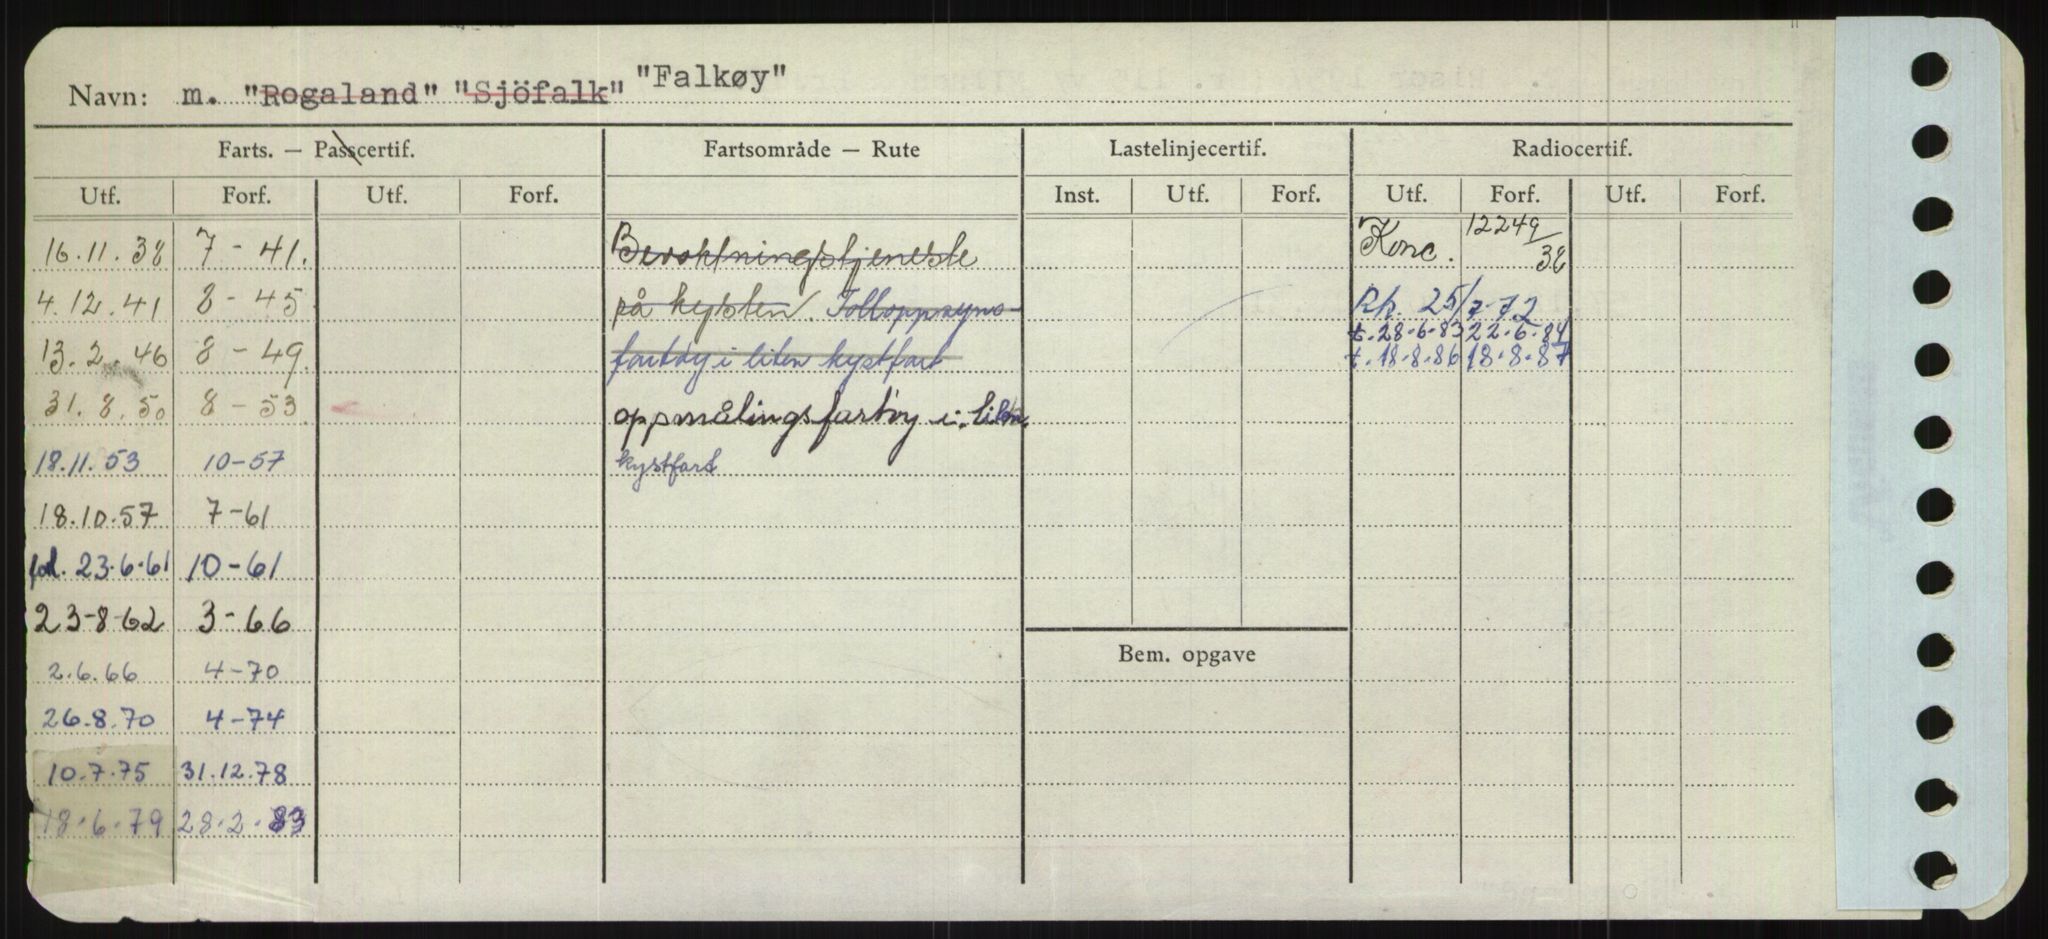 Navn: m. "Rogaland" "Sjöfalk" "Falkøy"
Farts. — Passcertif. Fartsområde — Rute Lastelinjecertif. Radiocertif.
Utf. Forf. Utf. Forf. Inst. Utf. Forf. Utf. Forf. Utf. Forf.
16.11.38 7 - 41. Bevoktningstjeneste Konc. 12249/38
4.12.41 8 - 45 på kysten. Tolloppsyns- Rh. 25/7-72
t. 28-6-83 22-6-84
13.2.46 8 - 49. fartøy i liten kystfart t. 18-8-86 18-8-87
31.8.50 8 - 53 oppmålingsfartøy i liten
18.11.53 10-57 kystfart
18.10.57 7-61
fol. 23.6.61 10-61
23-8-62 3-66
Bem. opgave
2.6.66 4-70
26.8.70 4-74
10.7.75 31.12.78
18.6.79 28.2.83